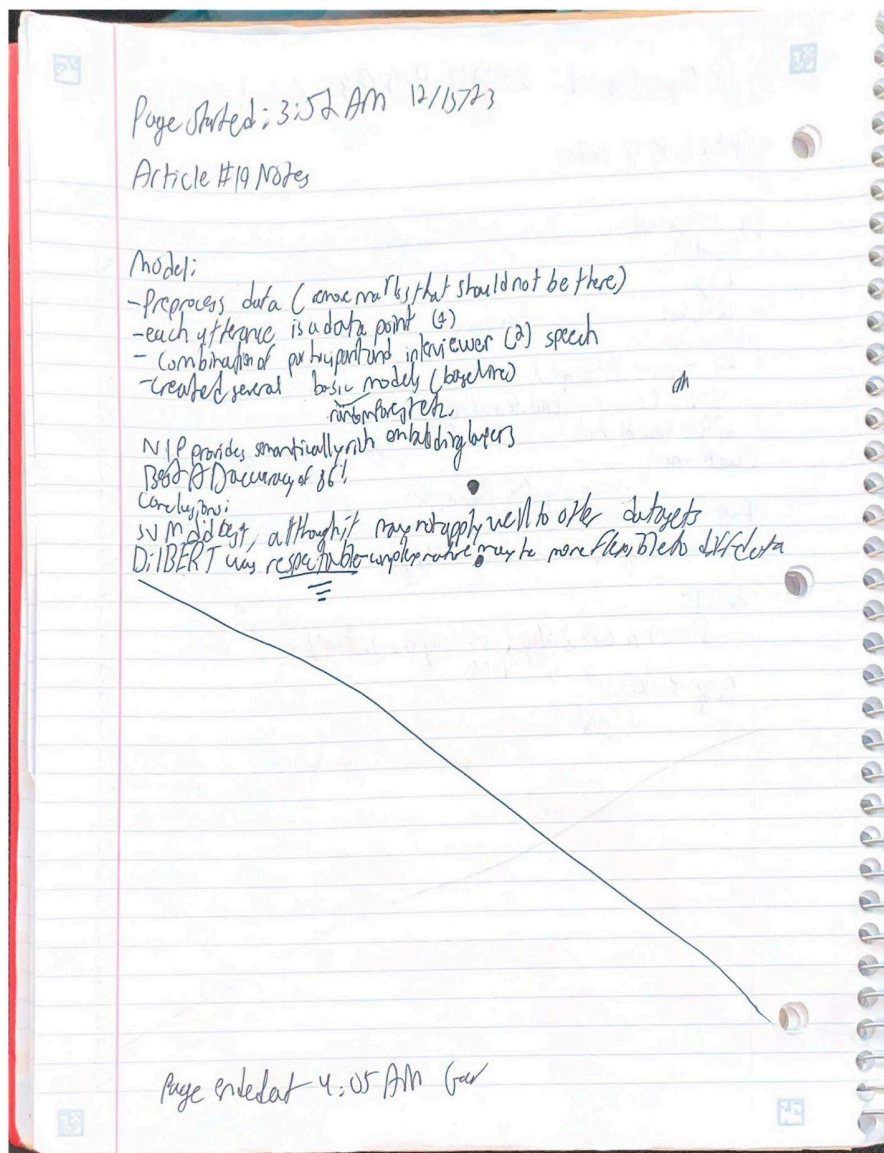 Page started: 3:52 AM 12/15/23
Article #19 Notes
Model:
-Preprocess data (remove marks that should not be there)
-each utterance is a data point (1)
- combination of participant and interviewer (2) speech
-created several basic models (baseline)
random forest etc.
NLP provides semantically rich embedding layers
Best AD accuracy of
Conclusions:
SVM did best, although it may not apply well to other datasets
DilBERT was respectable-complex nature may be more flexible to diff data
Page ended at 4:05 AM